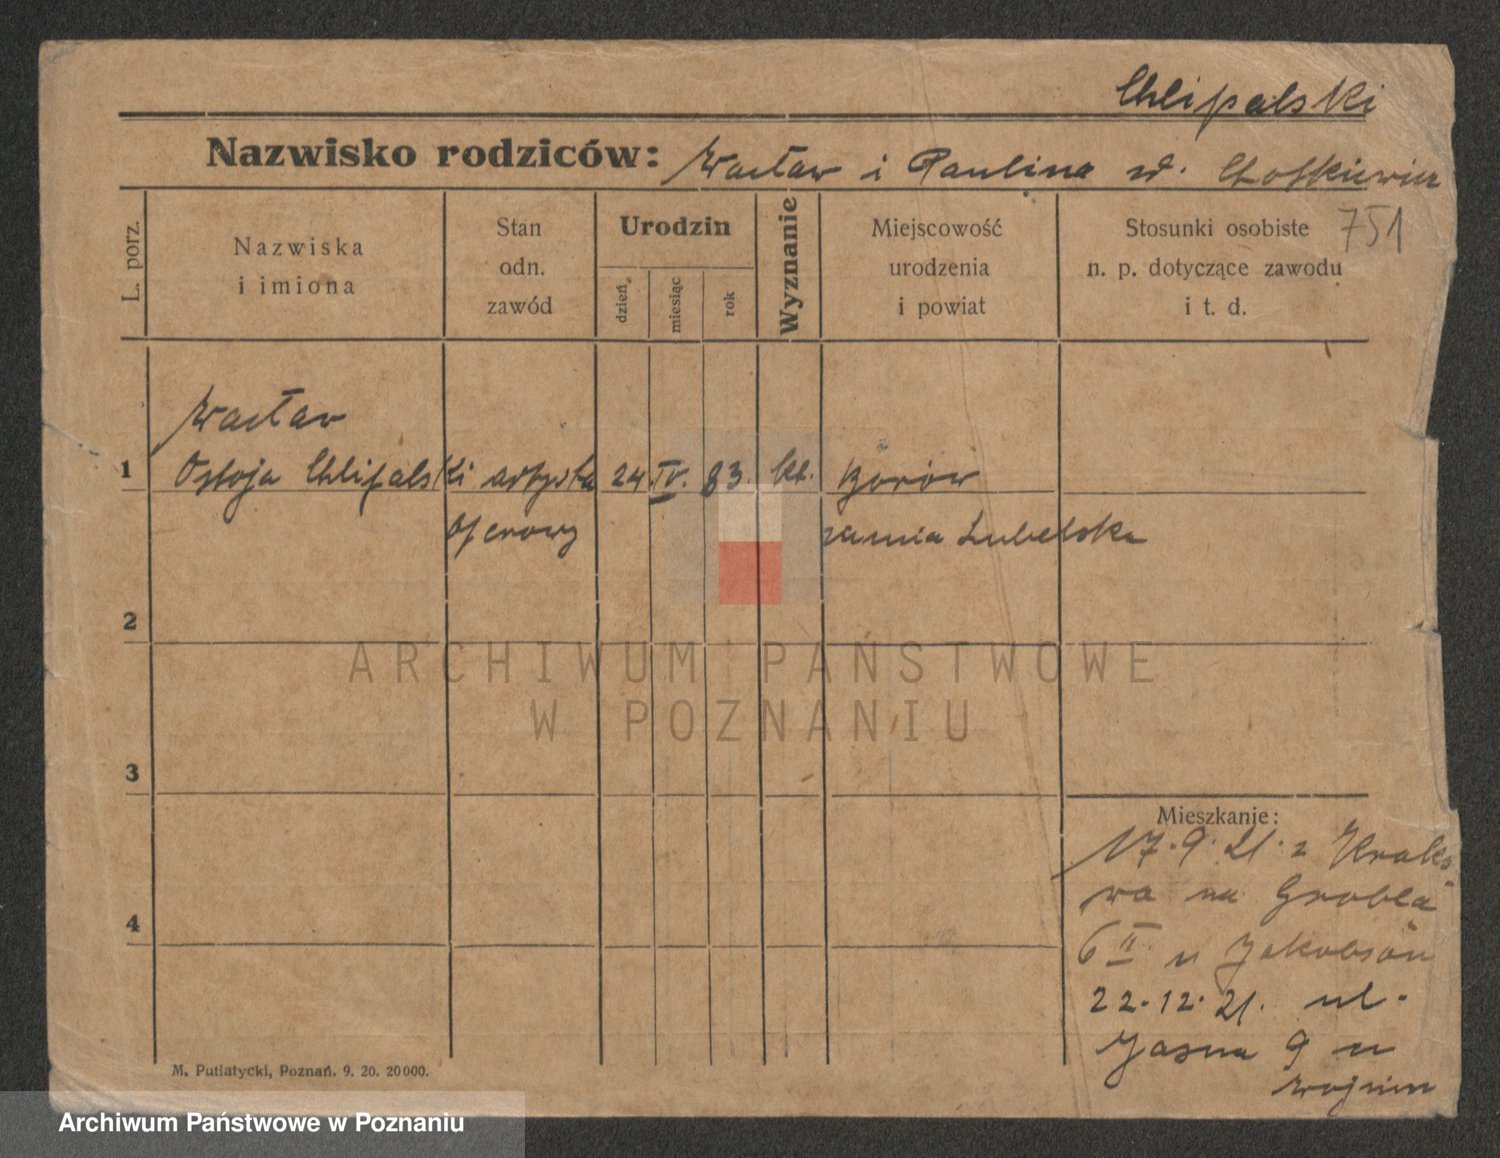 Chlipalski
Nazwisko rodziców: Wacław i Paulina
751
L. porz.
Nazwiska
i imiona
Stan
odn.
zawód
Urodzin
dzień
miesiąc
rok
Wyznanie
Miejscowość
urodzenia
i powiat
Stosunki osobiste
n. p. dotyczące zawodu
i t. d.
Wacław
1 Ostoja Chlipalski artysta 24 IV. 83. kt. Borów
operowy ziemia Lubelska
2
3
4
Mieszkanie:
17.9.21. z Krako
wa na Grobla
6 II u Jakobson
22.12.21. ul.
Jasna 9 u
M. Putiatycki, Poznań. 9. 20. 20000.
ARCHIWUM PAŃSTWOWE
W POZNANIU
Archiwum Państwowe w Poznaniu